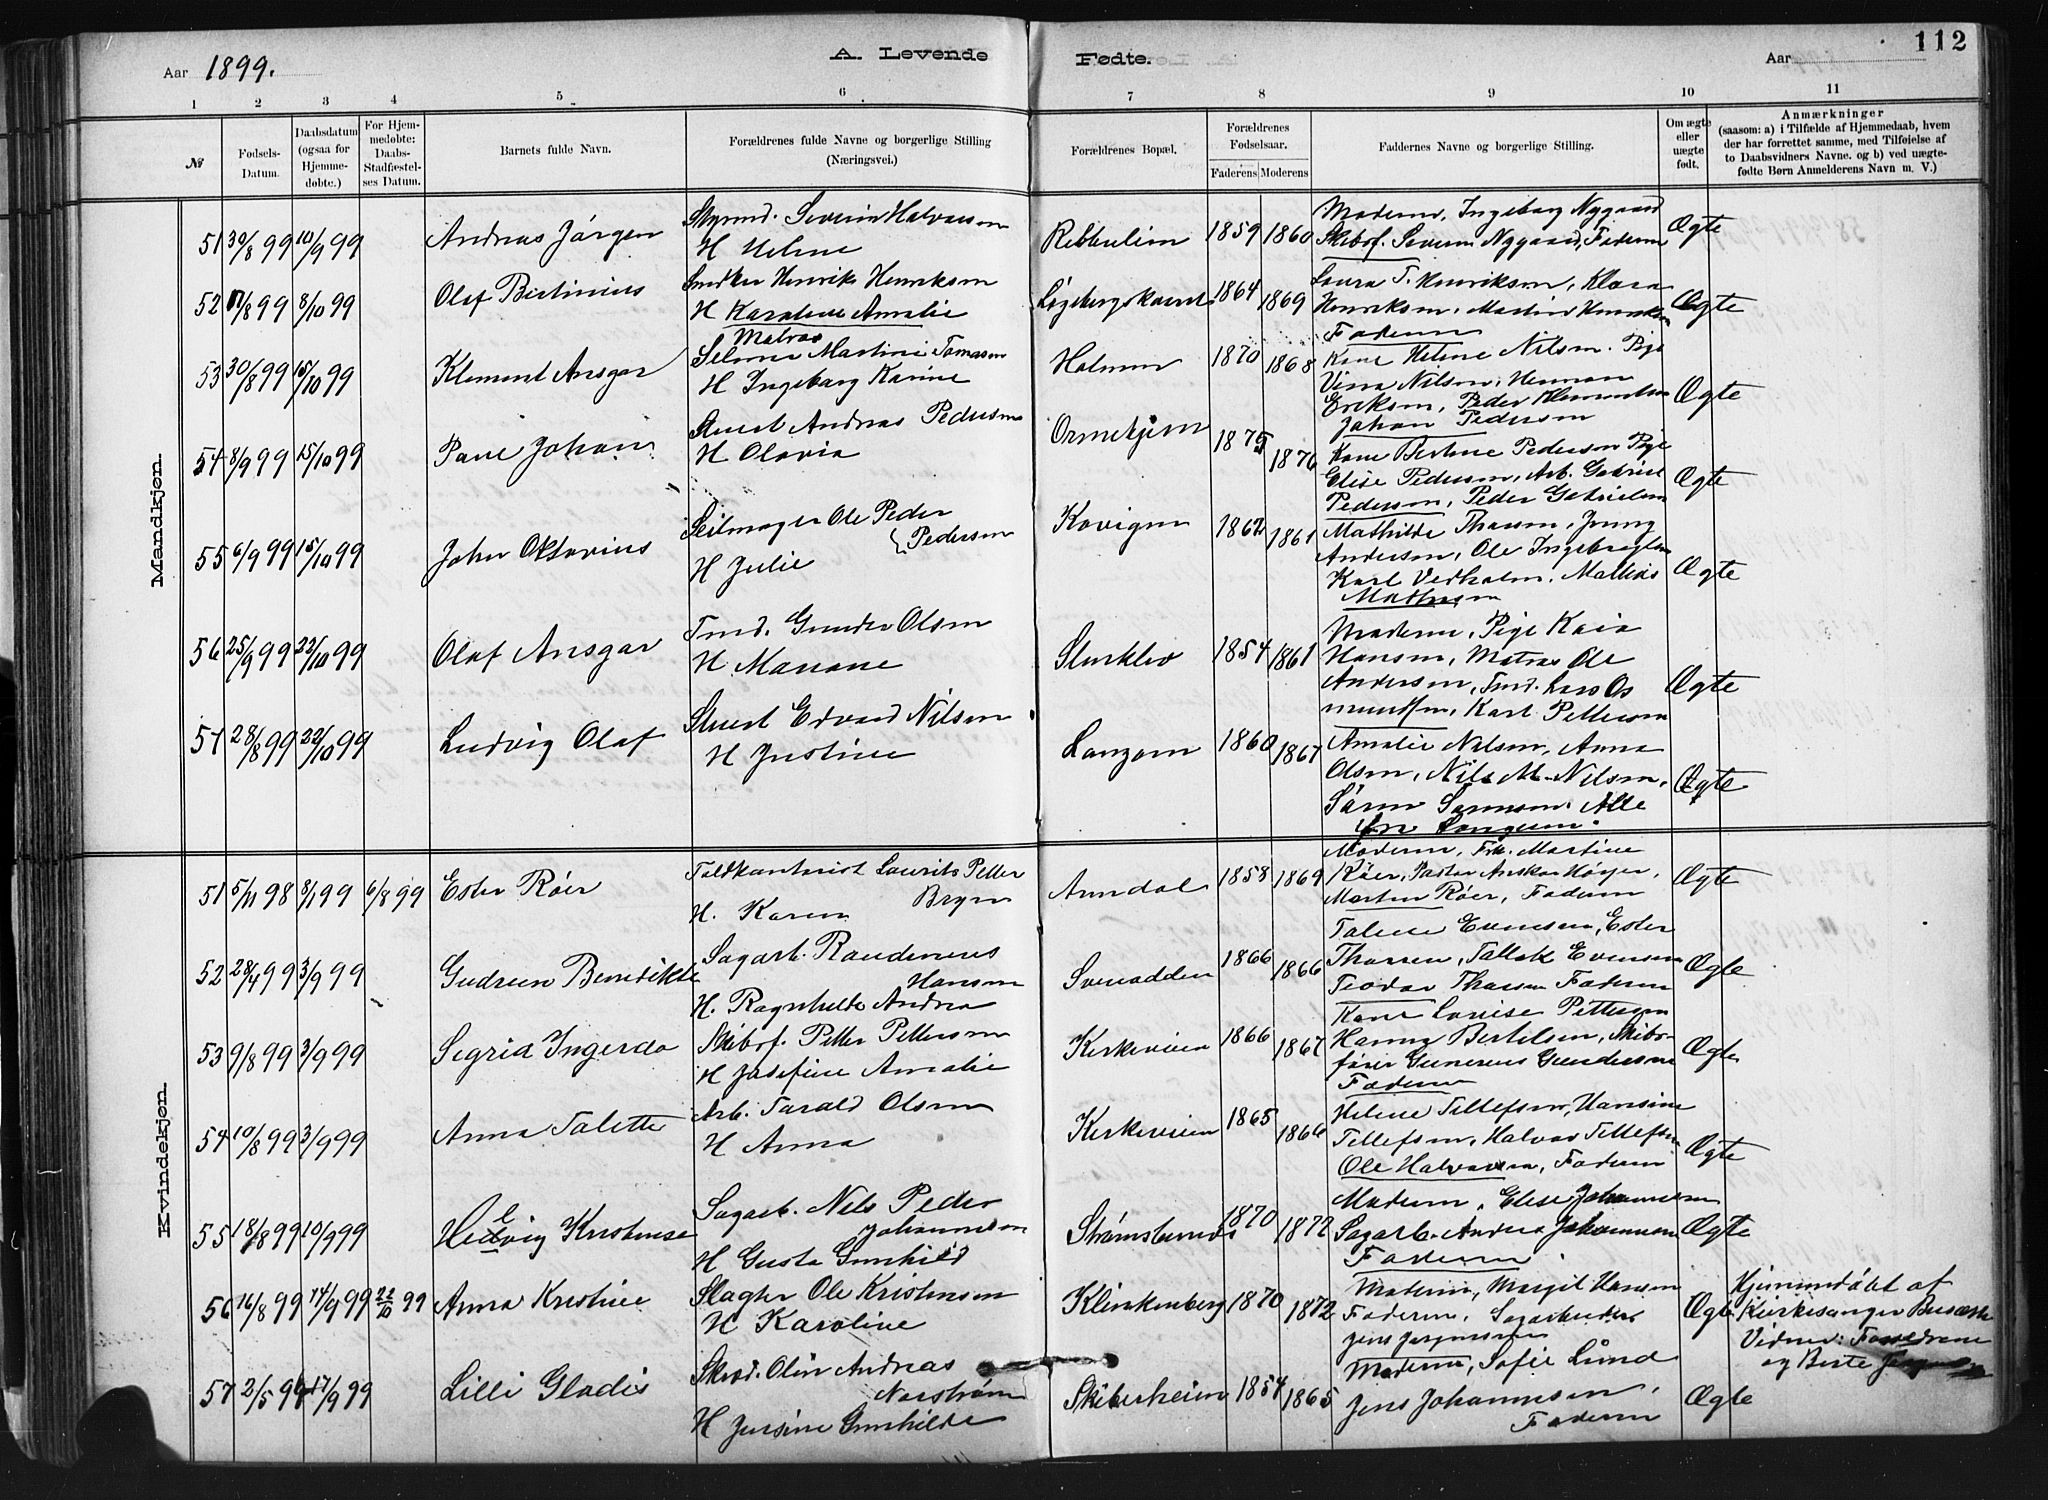 Aar 1899.
A. Levende
Fødte.
Aar
112
1 2 3 4 5 6 7 8 9 10 11
№
Fødsels-Datum.
Daabsdatum (ogsaa for Hjemmedøbte.)
For Hjemmedøbte: Daabs-Stadfæstelses Datum.
Barnets fulde Navn.
Forældrenes fulde Navne og borgerlige Stilling (Næringsvei.)
Forældrenes Bopæl.
Forældrenes Fødselsaar.
Faderens Moderens
Faddernes Navne og borgerlige Stilling.
Om ægte eller uægte født.
Anmærkninger
(saasom: a) i Tilfælde af Hjemmedaab, hvem
der har forrettet samme, med Tilføielse af
to Daabsvidners Navne, og b) ved uægte-
fødte Børn Anmelderens Navn m. V.)
Mandkjøn.
51 30/8 99 10/9 99 Andreas Jørgen
Styrmd. Severin Halvorsen
H Helene
1859 1860
Moderen, Ingeborg Nygaard
Skibsf. Severin Nygaard, Faderen
Ægte
52 17/8 99 8/10 99 Olaf Bertinius
Snedker Henrik Henriksen
H Karoline Amalie
1864 1869
Laura T. Henriksen, Klara
Henriksen, Martin Henriksen
Faderen
Ægte
53 30/8 99 15/10 99 Klement Ansgar
Matros
H Ingeborg Karine
Holmen 1870 1868
Kone Helene Nilsen. Pige
Nilsen, Herman
Eriksen, Peder Klementsen
Johan Pedersen
Ægte
54 8/9 99 15/10 99 Johan
Stuert Andreas Pedersen
H Olavia
1875 1876
Kone Bertine Pedersen Pige
Elise Pedersen, Arb. Gabriel
Pedersen, Peder Gabrielsen
Ægte
55 6/9 99 15/10 99 John Oktavius
Seilmager Ole Peder
Pedersen
H Julie
Kovigen 1862 1861
Mathilde Thorsen, Jenny
Andersen, Ole Ingebregtsen
Karl Vedholm, Mathias
Mathisen
Ægte
56 25/9 99 22/10 99 Olaf Ansgar
Tmd. Gunder Olsen
H Mariane
1854 1861
Moderen, Pige Kaia
Hansen, Matros Ole
Andersen, Tmd. Lars Os
mundsen, Karl Pettersen
Ægte
57 28/8 99 22/10 99 Ludvig Olaf
Stuert Edvard Nilsen
H Justine
Langom 1860 1867
Amalie Nilsen, Anna
Olsen, Nils M. Nilsen,
Søren Sørensen. Alle
fra Langum.
Ægte
Kvindekjøn.
51 5/11 98 8/1 99 6/8 99 Ester Røer
Toldkontorist Laurits Petter
Bryn
H. Karen
Arendal 1858 1869
Moderen, Frk. Martine
Røer, Pastor Anskar Høyer,
Morten Røer, Faderen
Ægte
52 28/4 99 3/9 99 Gudrun Benedikte
Sagarb. Raudenius
Hansen
H. Ragnhilde Andrea
Svenodden 1866 1866
Taline Evensen, Ester
Thorsen, Tallak Evensen
Teodor Thorsen Faderen
Ægte
53 9/8 99 3/9 99 Sigrid Ingerda
Skibsf. Petter Pettersen
H Josefine Amalie
Kirkeveien 1866 1867
Kone Lovise Pettersen
Hanny Bertelsen, Skibs-
fører Gunerius Gundersen
Faderen
Ægte
54 10/8 99 3/9 99 Anna Talette
Arb. Tarald Olsen
H Anna
Kirkeveien 1865 1866
Helene Tellefsen, Hansine
Tellefsen, Halvor Tellefsen
Ole Halvorsen, Faderen
Ægte
55 18/8 99 10/9 99 Hedvig Kristense
Sagarb. Nils Peder
Johannesen
H Gusta Gunhild
1870 1872
Moderen, Elise Johannesen
Sagarb. Andreas Johannesen
Faderen
Ægte
56 16/8 99 17/9 99 22/10 99 Anna Kristine
Slagter Ole Kristensen
H Karoline
Klinkenberg 1870 1872
Moderen, Margit Hansen
Faderen, Sagarbeider
Jens Jørgensen
Ægte
Hjemmedøbt af
Kirkesanger
Vidner: Forældrene
og Berte
57 2/5 99 17/9 99 Lilli Gladis
Skræd. Olin Andreas
Norstrøm
H Jensine Gunhilde
Skiberheien 1854 1865
Moderen, Sofie Lund
Jens Johannesen,
Faderen
Ægte